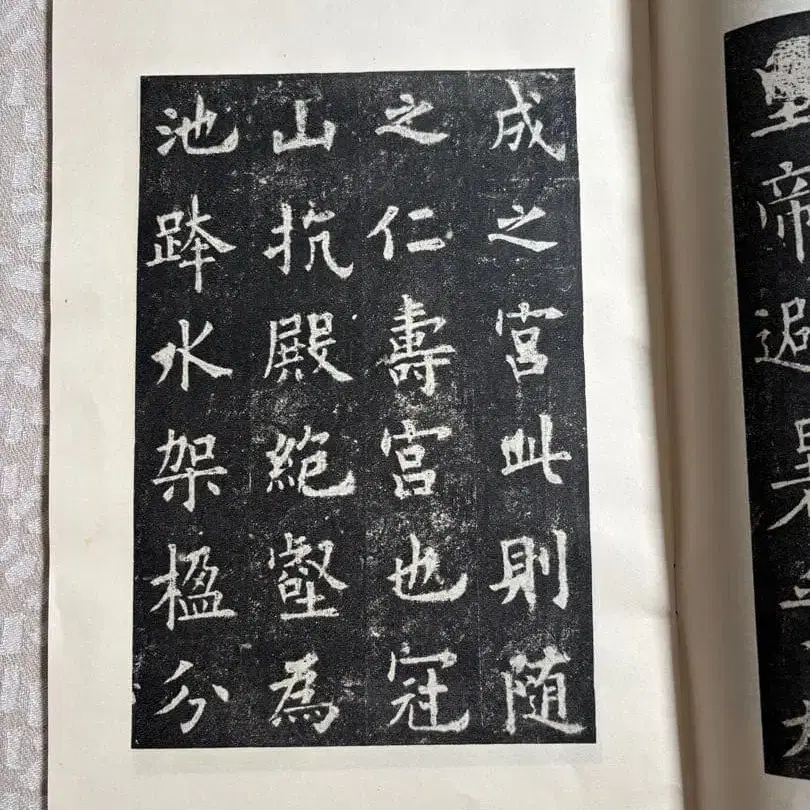 皇帝避暑
成之宮此則隨
之仁壽宮也冠
山抗殿絶壑為
池跨水架楹分